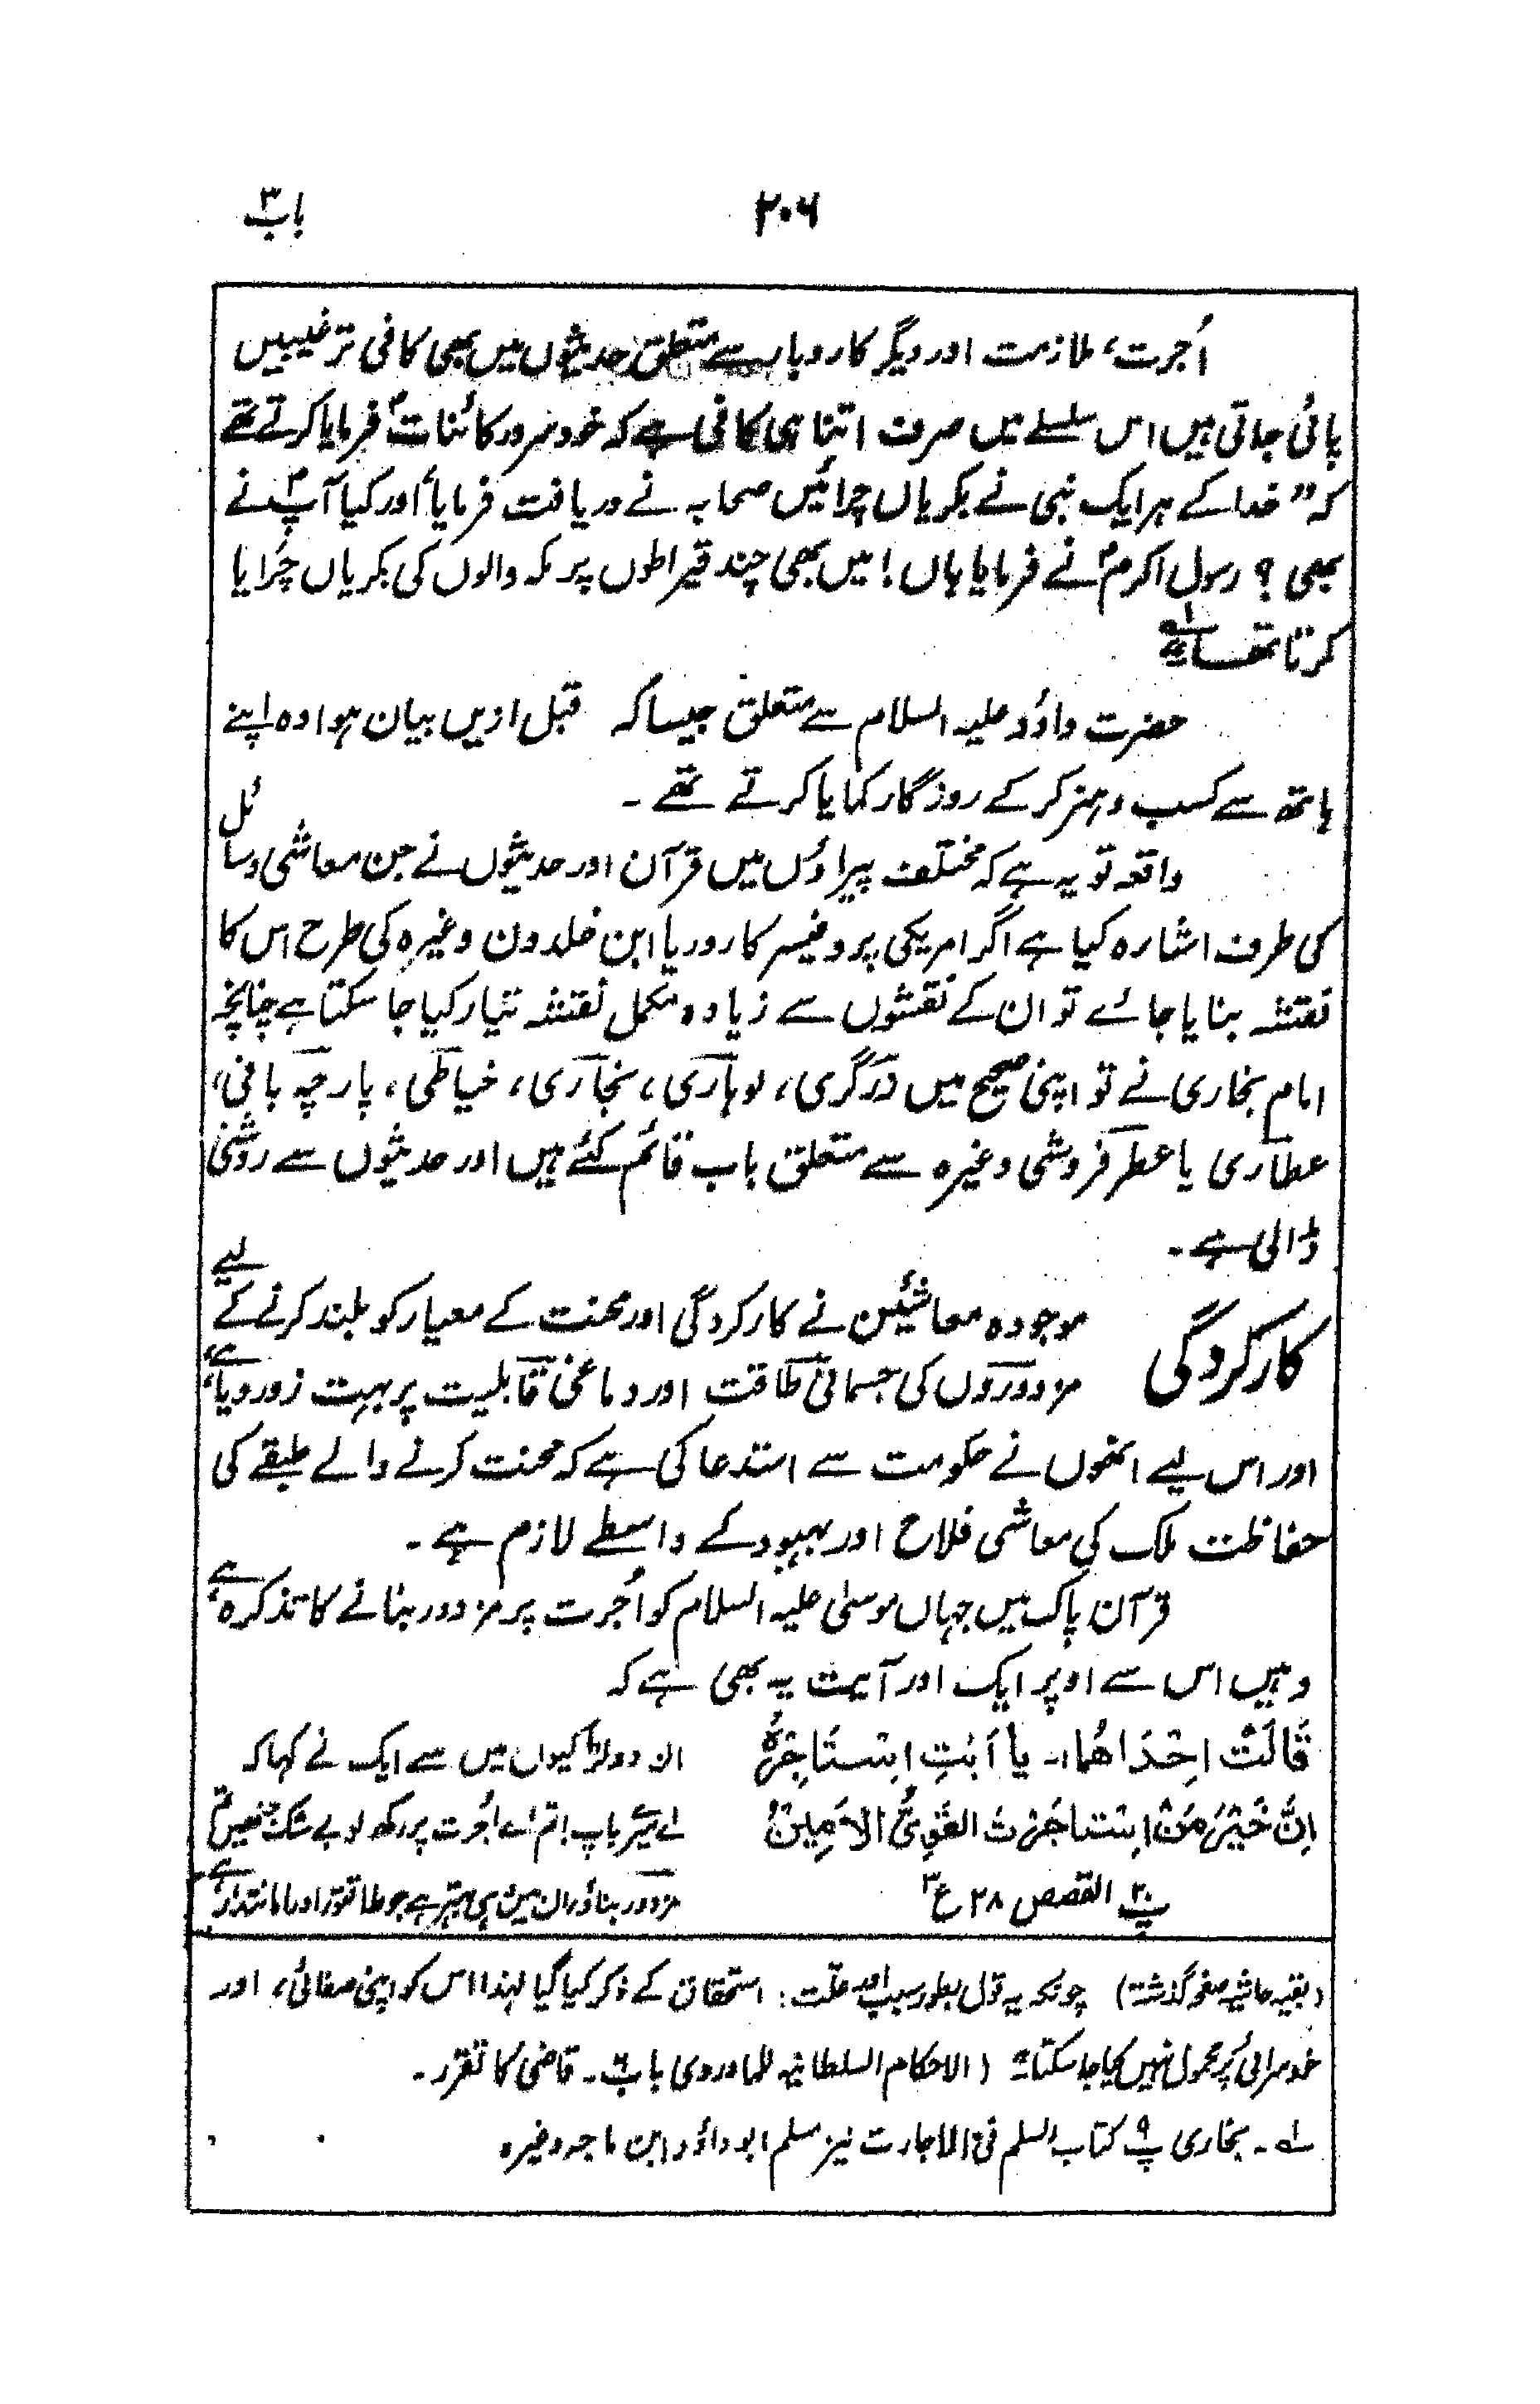 باب ۳
۲۰۶
اُجرت، ملازمت اور دیگر کاروبار سے متعلق حدیثوں میں بھی کافی ترغیبیں
پائی جاتی ہیں اس سلسلے میں صرف اتنا ہی کافی ہے کہ خود سرور کائنات ؐ فرمایا کرتے تھے
کہ ”خدا کے ہر ایک نبی نے بکریاں چرائیں صحابہ نے دریافت فرمایا اور کیا آپؐ نے
بھی؟ رسول اکرم ؐ نے فرمایا ہاں! میں بھی چند قیراطوں پر مکہ والوں کی بکریاں چَرایا
کرتا تھا ؎۱
حضرت داؤد علیہ السلام سے متعلق جیسا کہ قبل ازیں بیان ہوا وہ اپنے
ہاتھ سے کسب و ہنر کر کے روزگار کمایا کرتے تھے ۔
واقعہ تو یہ ہے کہ مختلف پیراؤں میں قرآن اور حدیثوں نے جن معاشی وسائل
کی طرف اشارہ کیا ہے اگر امریکی پروفیسر کارور یا ابن خلدون وغیرہ کی طرح اس کا
نقشہ بنایا جائے تو ان کے نقشوں سے زیادہ مکمل نقشہ تیار کیا جا سکتا ہے چنانچہ
امام بخاری نے تو اپنی صحیح میں زرگری، لوہاری، نجاری، خیاطی، پارچہ بافی،
عطاری یا عطر فروشی وغیرہ سے متعلق باب قائم کئے ہیں اور حدیثوں سے روشنی
ڈالی ہے ۔
کارکردگی
موجودہ معاشئین نے کارکردگی اور محنت کے معیار کو بلند کرنے کے لیے
مزدوروں کی جسمانی طاقت اور دماغی قابلیت پر بہت زور دیا ہے،
اور اس لیے انھوں نے حکومت سے استدعا کی ہے کہ محنت کرنے والے طبقے کی
حفاظت ملک کی معاشی فلاح اور بہبود کے واسطے لازم ہے ۔
قرآن پاک میں جہاں موسیٰ علیہ السلام کو اُجرت پر مزدور بنانے کا تذکرہ ہے،
وہیں اس سے اوپر ایک اور آیت یہ بھی ہے کہ
قَالَتْ اِحْدَاهُمَا۔ یا اَبَتِ اِسْتَاجِرْہُ
اِنَّ خَیْرَ مَنْ اِسْتَاجَرْتَ القَوِیُّ الاَمِیْنُ
پ ۲۰ القصص ۲۸ ع ۳
ان دو لڑکیوں میں سے ایک نے کہا کہ
اے میرے باپ! تم اسے اجُرت پر رکھ لو بے شک جنھیں تم
مزدور بناؤ ان میں بہتر ہے جو طاقتور اور امانتدار ہے
(بقیہ حاشیہ صفحہ گذشتہ) چونکہ یہ قول بطور سبب اور علّت: استحقاق کے ذکر کیا گیا لہذا اس کو اپنی صفائی، اور
خود سرائی پر محمول نہیں کیا جا سکتا (الاحکام السلطانیہ للماوردی باب ۶۔ قاضی کا تقرر ۔
؎۱۔ بخاری پ ۹ کتاب السلم فی الاجارت نیز مسلم ابوداؤد ابن ماجہ وغیرہ